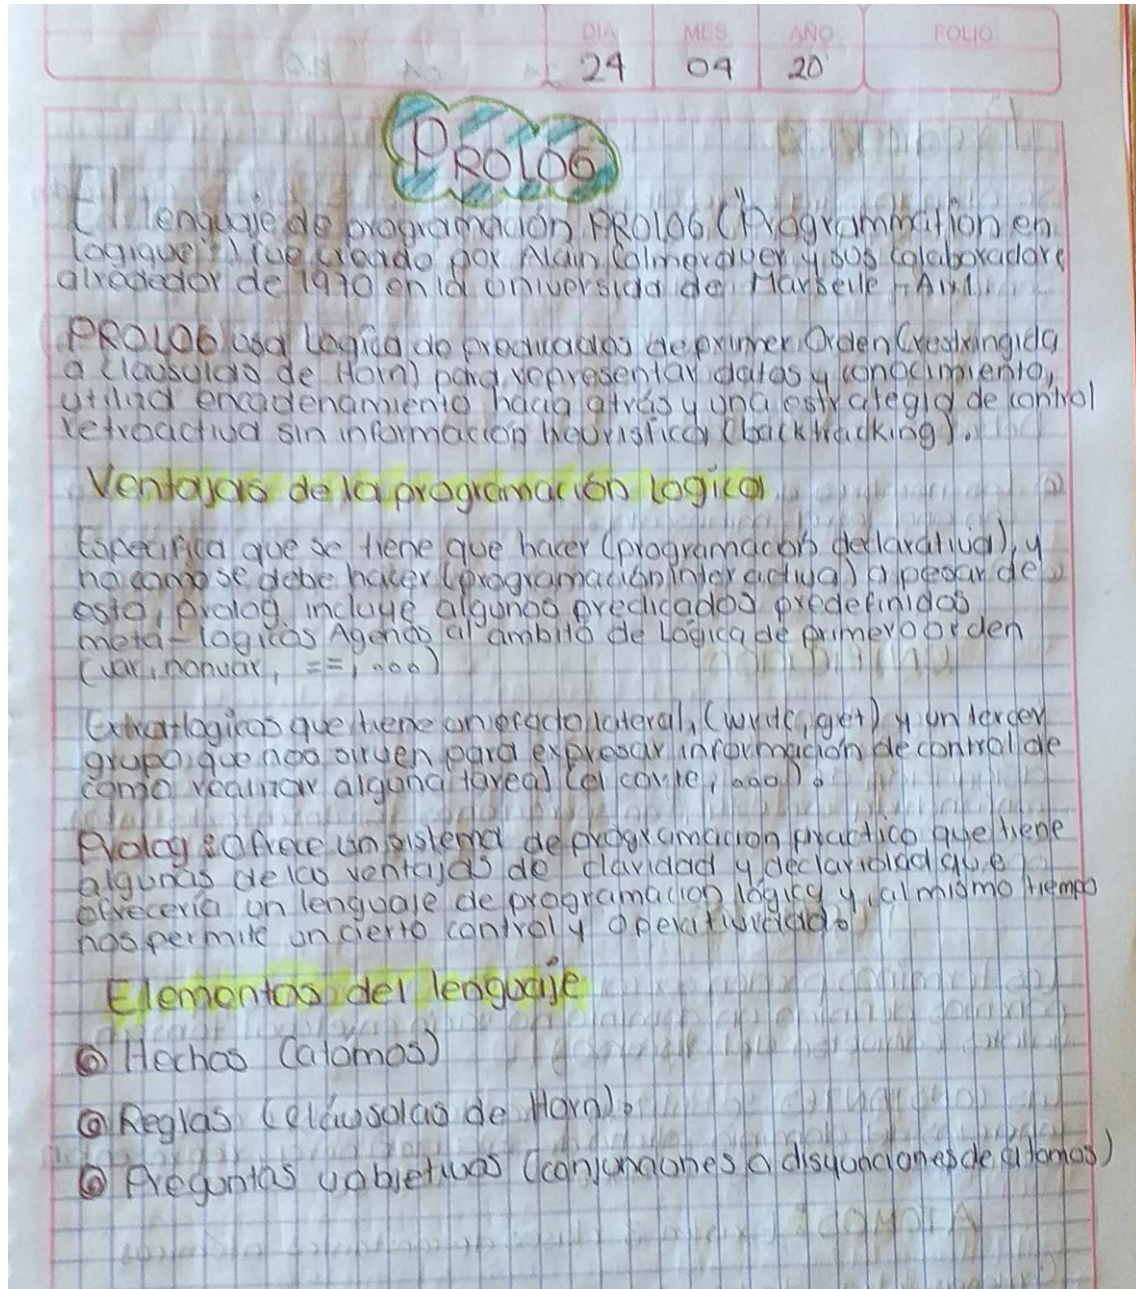 DIA MES AÑO FOLIO
24 04 20
PROLOG
El lenguaje de programación PROLOG ("Programmation en
logique") fue creado por Alain Colmerauer y sus colaboradore
alrededor de 1970 en la universida de Marseile-Aix1.
PROLOG usa Logica de predicados de primer Orden (restringida
a clausulas de Horn) para representar datos y conocimiento,
utiliza encadenamiento hacia atrás y una estrategia de control
retroactiva sin información heuristica (backtracking).
Ventajas de la programación logica
Especifica que se tiene que hacer (programación declarativa), y
no como se debe hacer (programación interactiva) a pesar de
esto, prolog incluye algunos predicados predefinidos
meta-logicos Agenos al ambito de Lógica de primero orden
(var, nonvar, ==, ...)
Extra-logicos que tiene un efecto lateral, (write, get) y un tercer
grupo que nos sirven para expresar información de control de
como realizar alguna tarea (el corte, ...).
Prolog: Ofrece un sistema de programacion practico que tiene
algunas de las ventajas de claridad y declaridad que
ofrecería un lenguaje de programacion lógica y, al mismo tiempo
nos permite un cierto control y operatividad.
Elementos del lenguaje
Hechos (atomos)
Reglas (cláusolas de Horn).
Preguntas u objetivos (conjunciones o disyunciones de átomos)